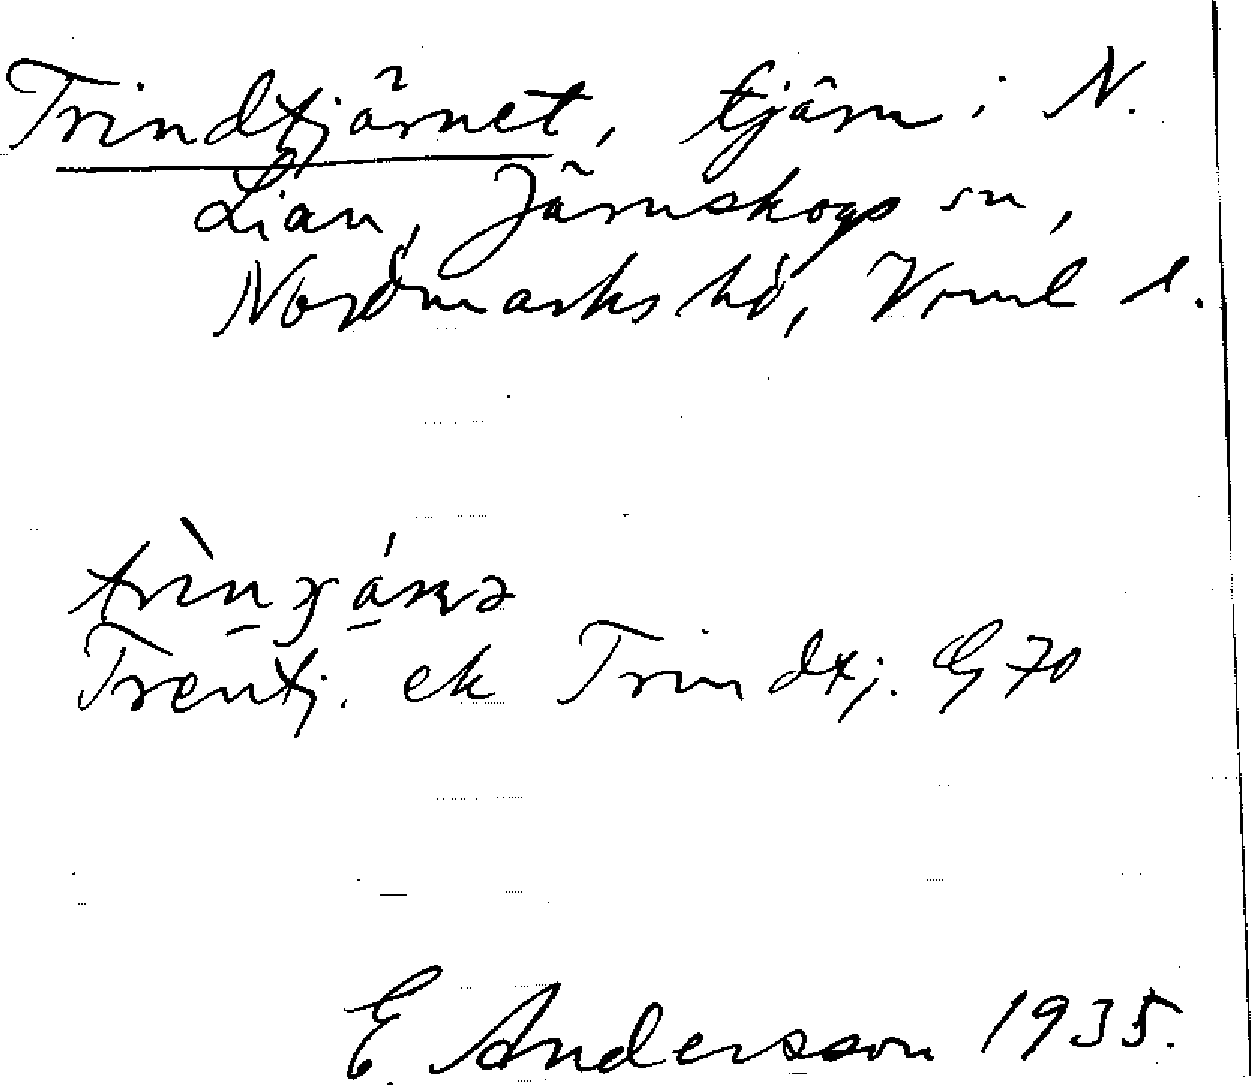 Trindtjärnet, tjärn i N.
Lian, Järnskogs sn,
Nordmarks hd, Vrml l.
Trentj. ek Trindtj. G 70
E Andersson 1935.